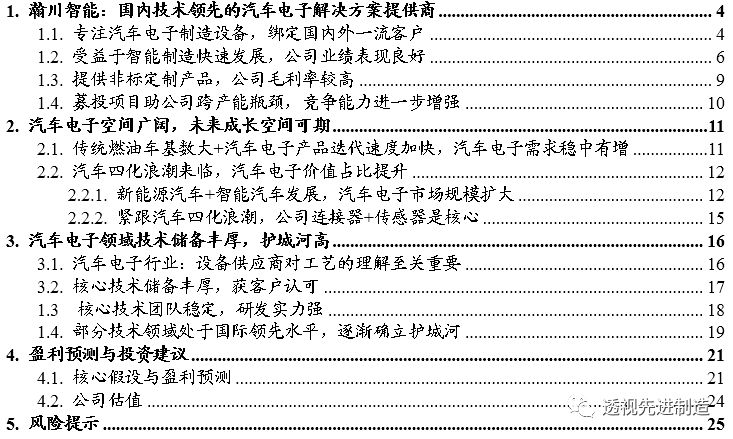 1. 瀚川智能：国内技术领先的汽车电子解决方案提供商 4
1.1. 专注汽车电子制造设备，绑定国内外一流客户 4
1.2. 受益于智能制造快速发展，公司业绩表现良好 6
1.3. 提供非标定制产品，公司毛利率较高 9
1.4. 募投项目助公司跨产能瓶颈，竞争能力进一步增强 10
2. 汽车电子空间广阔，未来成长空间可期 11
2.1. 传统燃油车基数大+汽车电子产品迭代速度加快，汽车电子需求稳中有增 11
2.2. 汽车四化浪潮来临，汽车电子价值占比提升 12
2.2.1. 新能源汽车+智能汽车发展，汽车电子市场规模扩大 12
2.2.2. 紧跟汽车四化浪潮，公司连接器+传感器是核心 15
3. 汽车电子领域技术储备丰厚，护城河高 16
3.1. 汽车电子行业：设备供应商对工艺的理解至关重要 16
3.2. 核心技术储备丰厚，获客户认可 17
1.3 核心技术团队稳定，研发实力强 18
1.4. 部分技术领域处于国际领先水平，逐渐确立护城河 19
4. 盈利预测与投资建议 21
4.1. 核心假设与盈利预测 21
4.2. 公司估值 24
5. 风险提示 25
透视先进制造